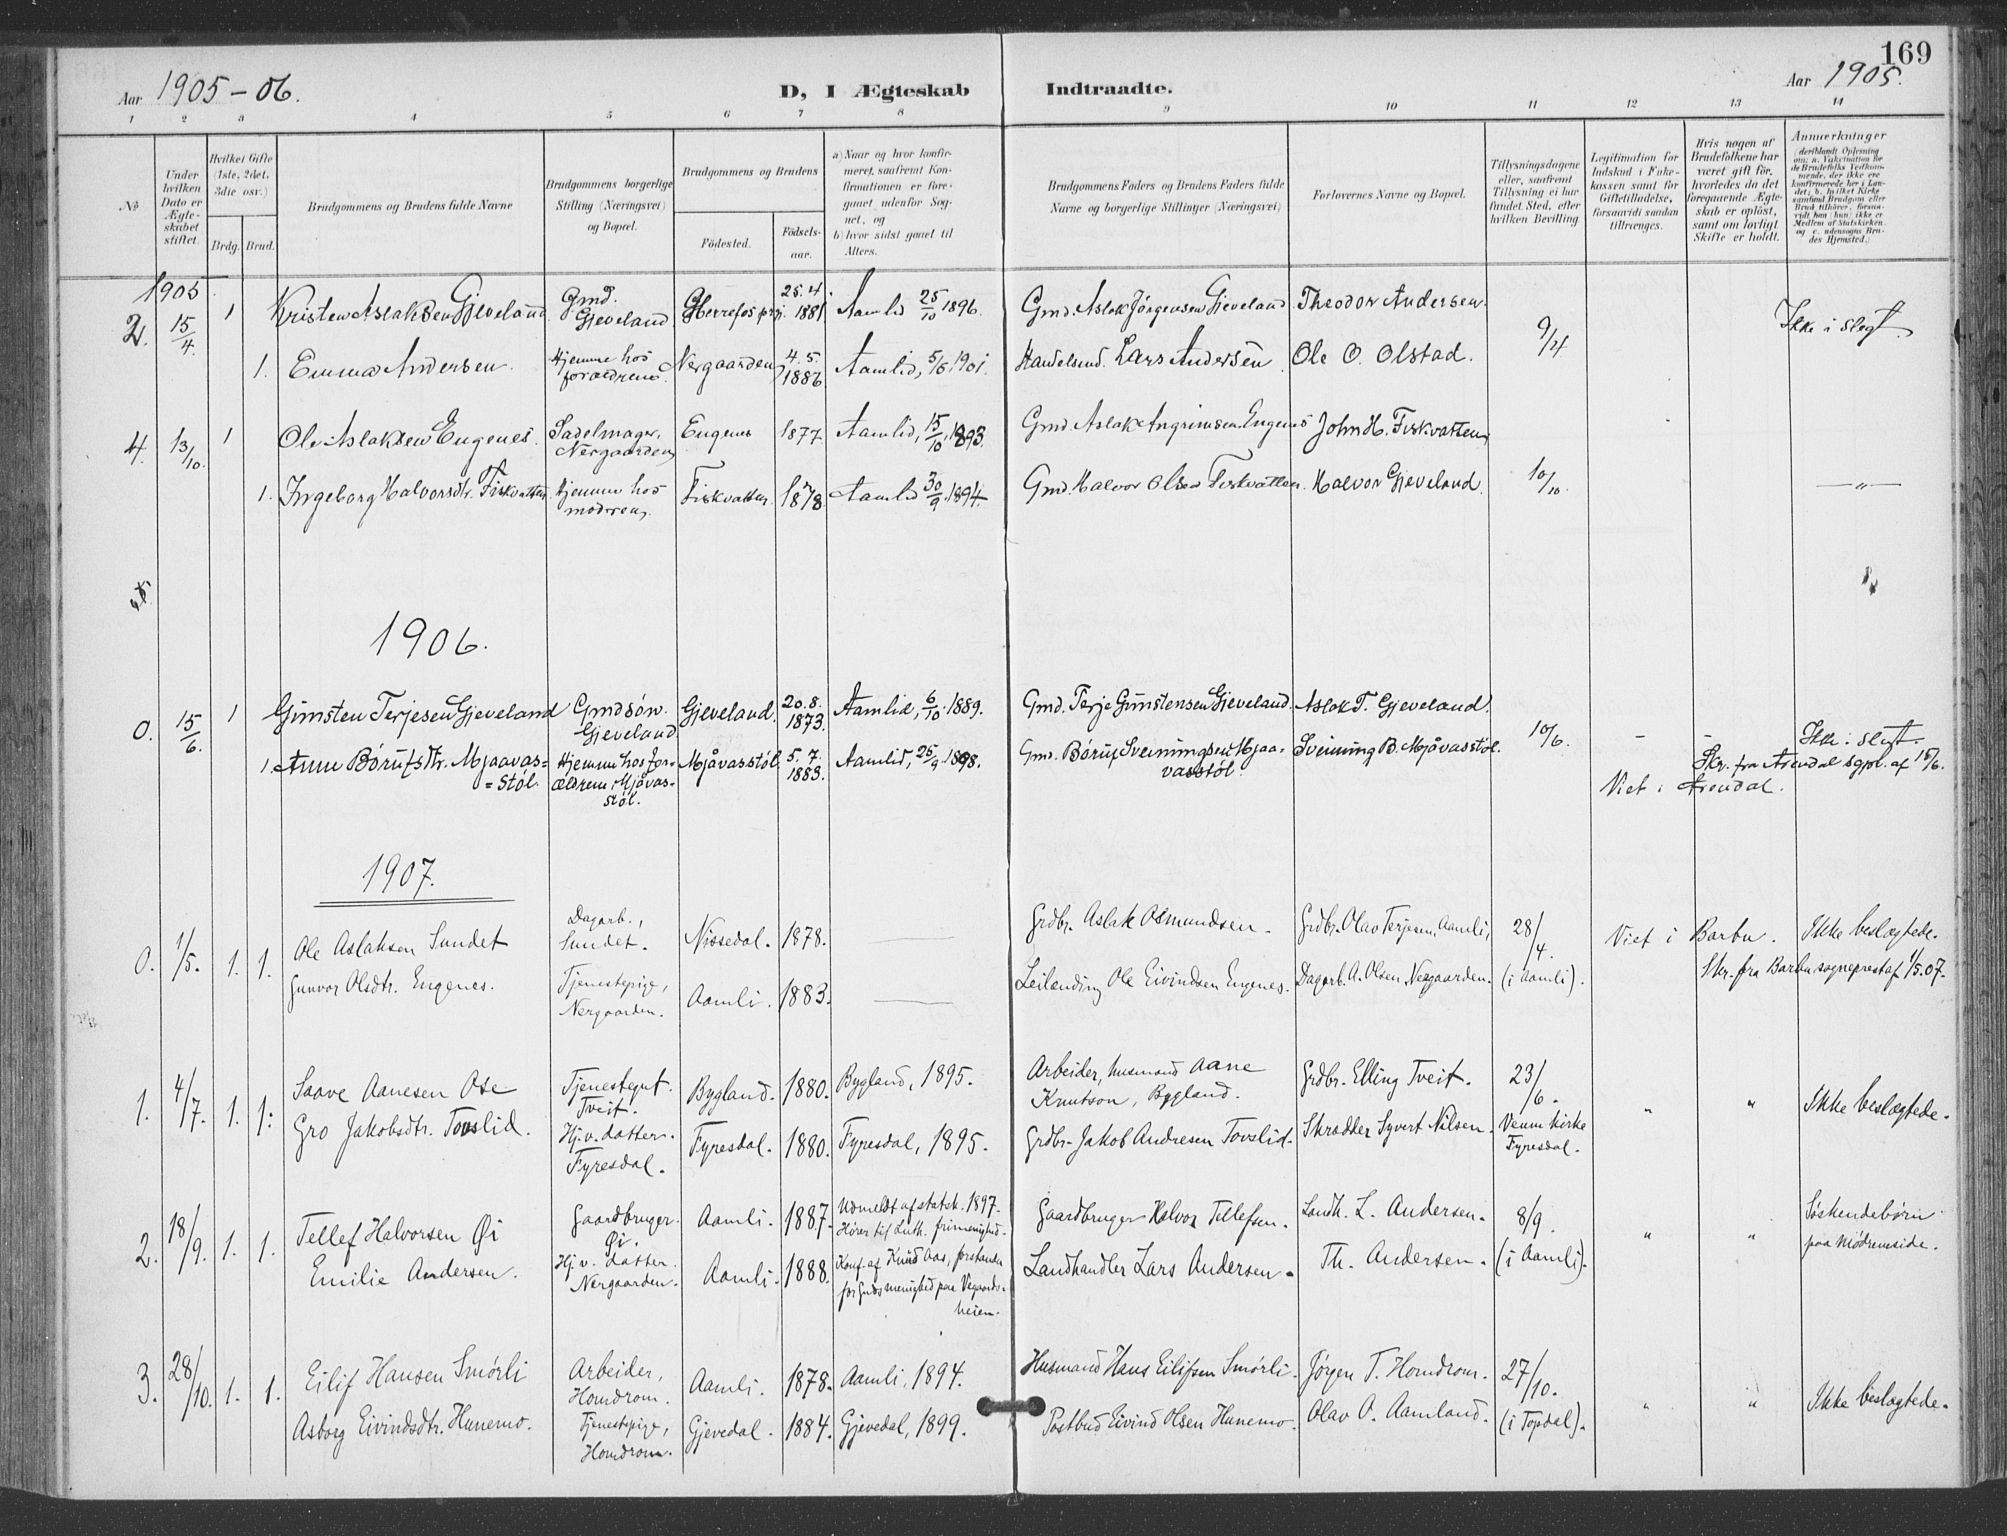 169
Aar 1905-06.
D, I Ægteskab Indtraadte.
Aar 1905.
1 2 3 4 5 6 7 8 9 10 11 12 13 14
No
Under hvilken Dato er Ægteskabet stiftet.
Hvilket Gifte (1ste, 2det, 3die osv.)
Brdg. Brud.
Brudgommens og Brudens fulde Navne
Brudgommens borgerlige Stilling (Næringsvei) og Bopæl.
Brudgommens og Brudens
Födested.
Födselsaar.
a) Naar og hvor konfirmeret, saafremt Konfirmationen er foregaaet udenfor Sognet, og
b) hvor sidst gaaet til Alters.
Brudgommens Faders og Brudens Faders fulde Navne og borgerlige Stillinger (Næringsvei)
Forlovernes Navne og Bopæl.
Tillysningsdagene eller, saafremt Tillysning ei har fundet Sted, efter hvilken Bevilling.
Legitimation for Indskud i Enkekassen samt for Giftetilladelse, forsaavidt saadan tiltrænges.
Hvis nogen af Brudefolkene har været gift för, hvorledes da det foregaaende Ægteskab er oplöst, samt om lovligt Skifte er holdt.
Anmærkninger
1905
2. 15/4. 1 Kristen Aslaksen Gjeveland Gmd. Gjeveland Herrefos prgj. 25.4. 1881 Aamlid 25/10 1896. Gmd. Aslak Jörgensen Gjeveland Theodor Andersen. 9/4 Ikke i slegt.
1. Emma Andersen. Hjemme hos foraldrene. Nergaarden 4.5. 1886 Aamlid, 5/5 1901. Handelsmd. Lars Andersen Ole O. Olstad.
4. 13/10. 1 Ole Aslaksen Engenes. Sadelmager, Nergaarden Engenes 1877. Aamlid, 15/10 1893. Gmd. Aslak Angrimsen Engenes John H. Fiskvatten 10/10.
1. Ingeborg Halvorsdtr. Fiskvatten Hjemme hos moderen. Fiskvatten. 1878 Aamlid 30/9 1894. Gmd. Halvor Olsen Fiskvatten. Halvor Gjeveland. — " —
1906.
0. 15/6. 1 Gunsten Terjesen Gjeveland Gmdsön. Gjeveland Gjeveland. 20.8. 1873. Aamlid, 6/10 1889. Gmd. Terje Gunstensen Gjeveland. Aslak T. Gjeveland. 10/6. - - Ikke i slegt.
1. Anne Börufsdtr. Mjaavas=stöl. Hjemme hos forældrene Mjåvasstöl. Mjåvasstöl 5.7. 1883. Aamlid, 25/9 1898. Gmd. Böruf Sveinungsen Mjaavasstöl. Sveinung B. Mjåvasstöl. Skr. fra Arendal sgpl. af 15/6.
Viet i Arendal.
1907.
0. 1/5. 1. 1. Ole Aslaksen Sundet Dagarb., Sundet. Nissedal. 1878. Grdbr. Aslak Osmundsen. Grdbr. Olav Terjesen, Aamli, 28/4. Viet i Barbu. Ikke beslægtede.
Gunvor Olsdtr. Engenes. Tjenestepige, Nergaarden. Aamli. 1883. Leilænding Ole Eivindsen Engenes. Dagarb. A. Olsen, Nergaarden. (i Aamli). Skr. fra Barbu sogneprest af 1/5.07.
1. 4/7. 1. 1. Saave Aanesen Ose Tjenestegut. Tveit. Bygland. 1880. Bygland, 1895. Arbeider, husmand Aane Knutson, Bygland. Grdbr. Elling Tveit. 23/6. " " Ikke beslægtede.
Gro Jakobsdtr. Tovslid. Hj. v. datter. Fyresdal. Fyresdal. 1880. Fyresdal, 1895. Grdbr. Jakob Andresen Tovslid. Skrædder Syvert Nilsen. Veum kirke Fyresdal.
2. 18/9. 1. 1. Tellef Halvorsen Øi Gaardbruger. Øi. Aamli. 1887. Udmeldt af statsk. 1897. Hører til Luth. frimenighed. Gaardbruger Halvor Tellefsen. Landh. L. Andersen. 8/9. " " Söskendebörn paa mødreneside.
Emilie Andersen. Hj. v. datter. Nergaarden. Aamli. 1888. Konf. af Knud Aas, forstander for Guds menighed paa Vegaardsheien. Landhandler Lars Andersen. Th. Andersen. (i Aamli).
3. 28/10. 1. 1. Eilif Hansen Smörli Arbeider, Homdrom. Aamli. 1878. Aamli, 1894. Husmand Hans Eilifsen Smörli. Jörgen T. Homdrom. 27/10. " " Ikke beslægtede.
Asborg Eivindsdtr. Hunemo. Tjenestepige, Homdrom. Gjevedal. 1884. Gjevedal, 1899. Postbud Eivind Olsen Hunemo. Olav O. Aamland. (i Topdal).